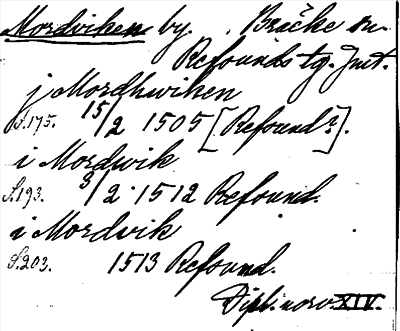 Mordviken by. Bräcke sn.
Refsunds tg. Jmt.
j Mordhwiken
S.175. 15/2 1505 [Refsund?].
i Mordwik
S.193. 3/2 1512 Refsund.
i Mordvik
S.203. 1513 Refsund.
Dipl. norv. XIV.